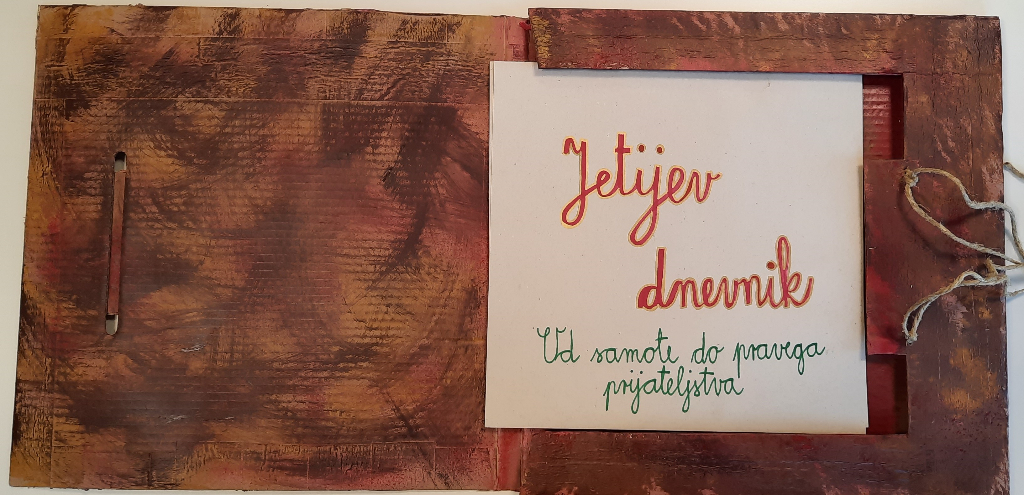 Jetijev
dnevnik
Od samote do pravega
prijateljstva